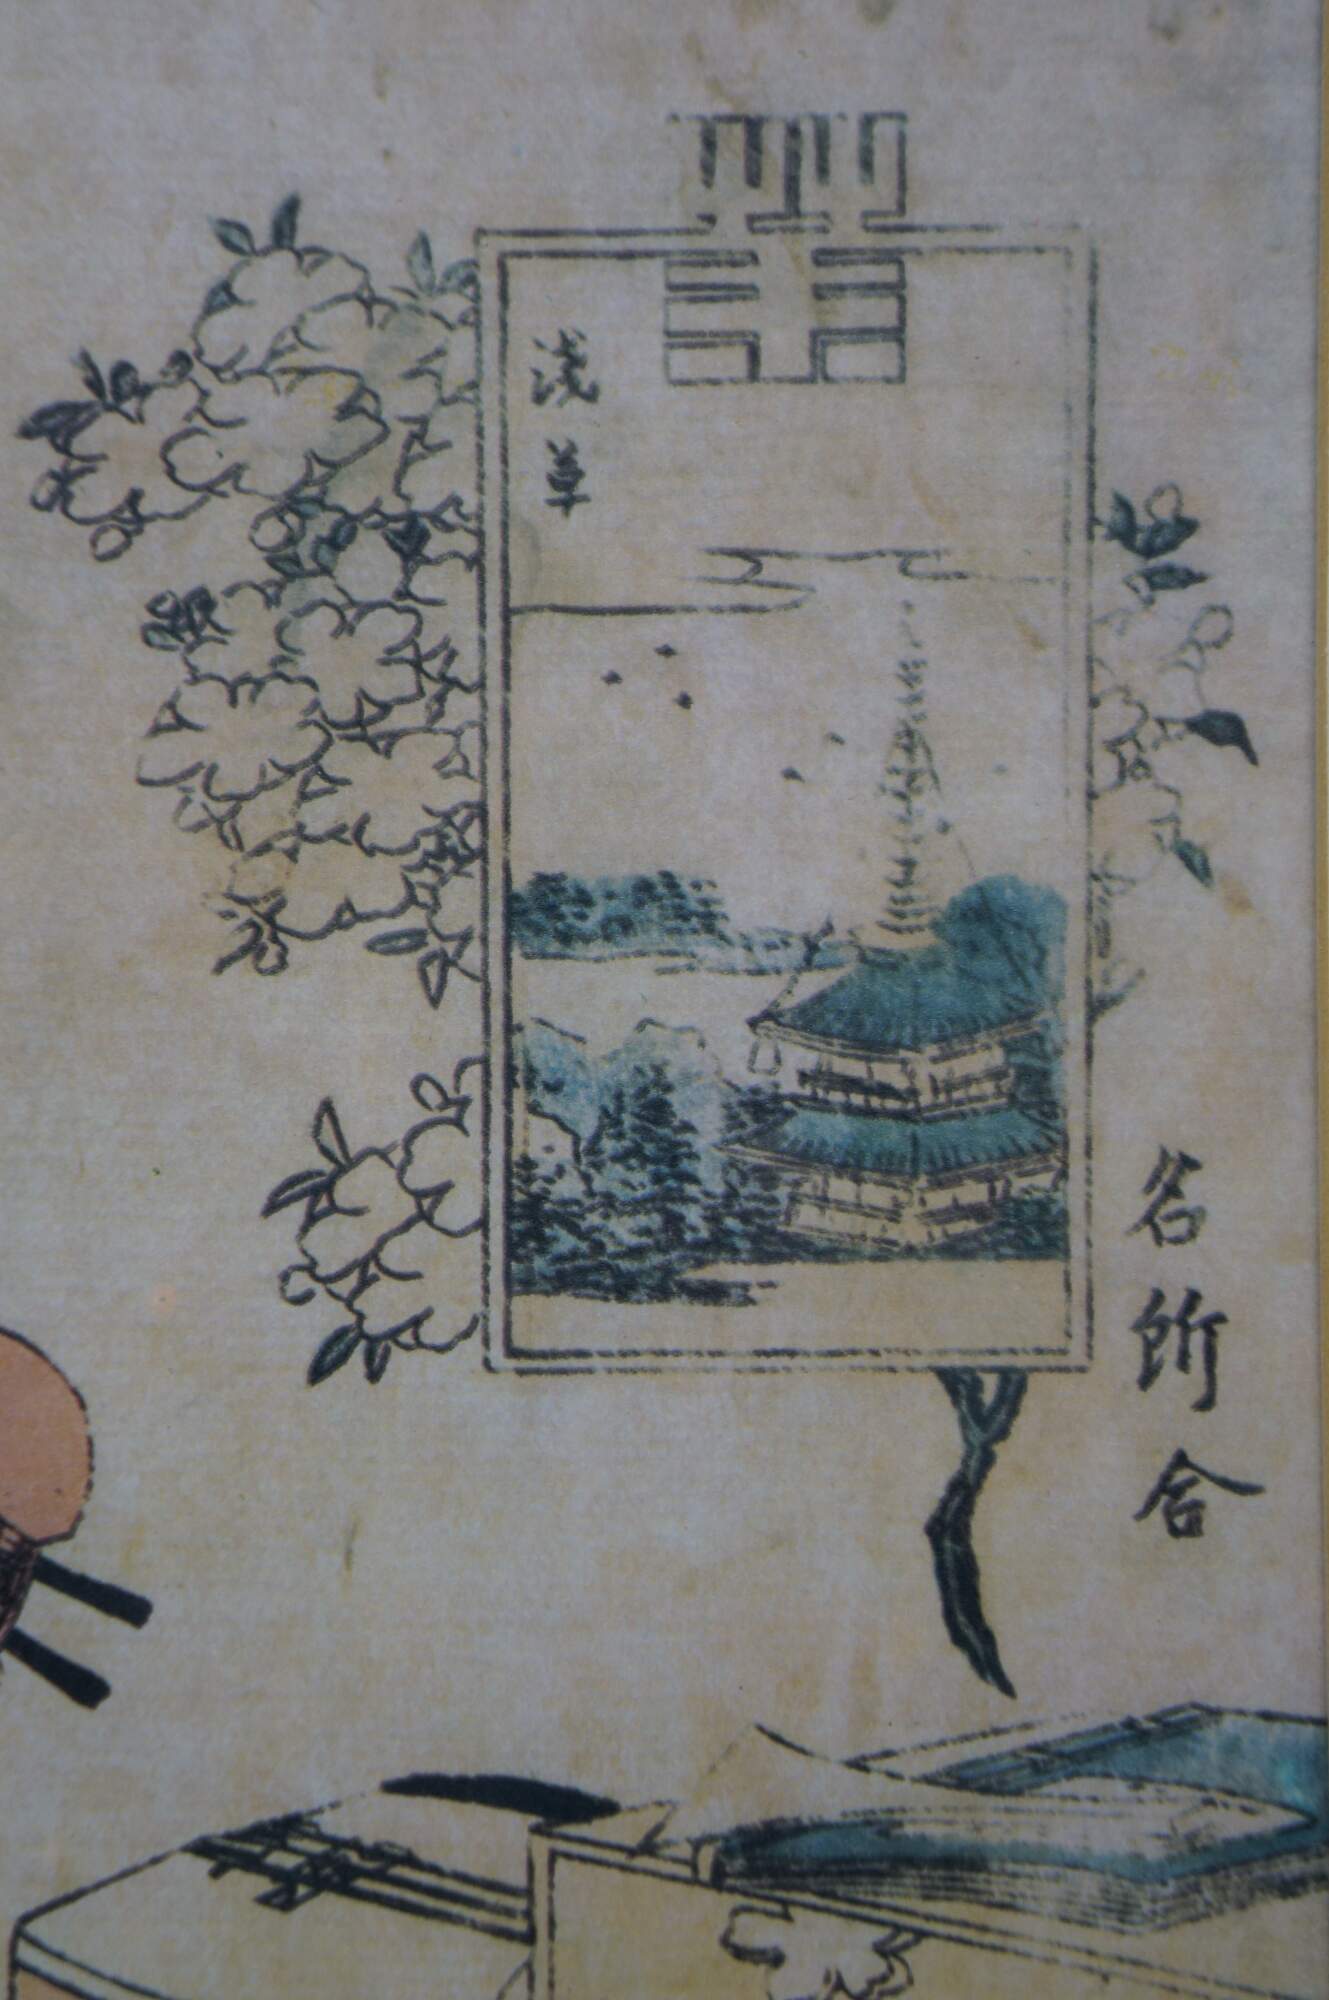 名所合
浅草